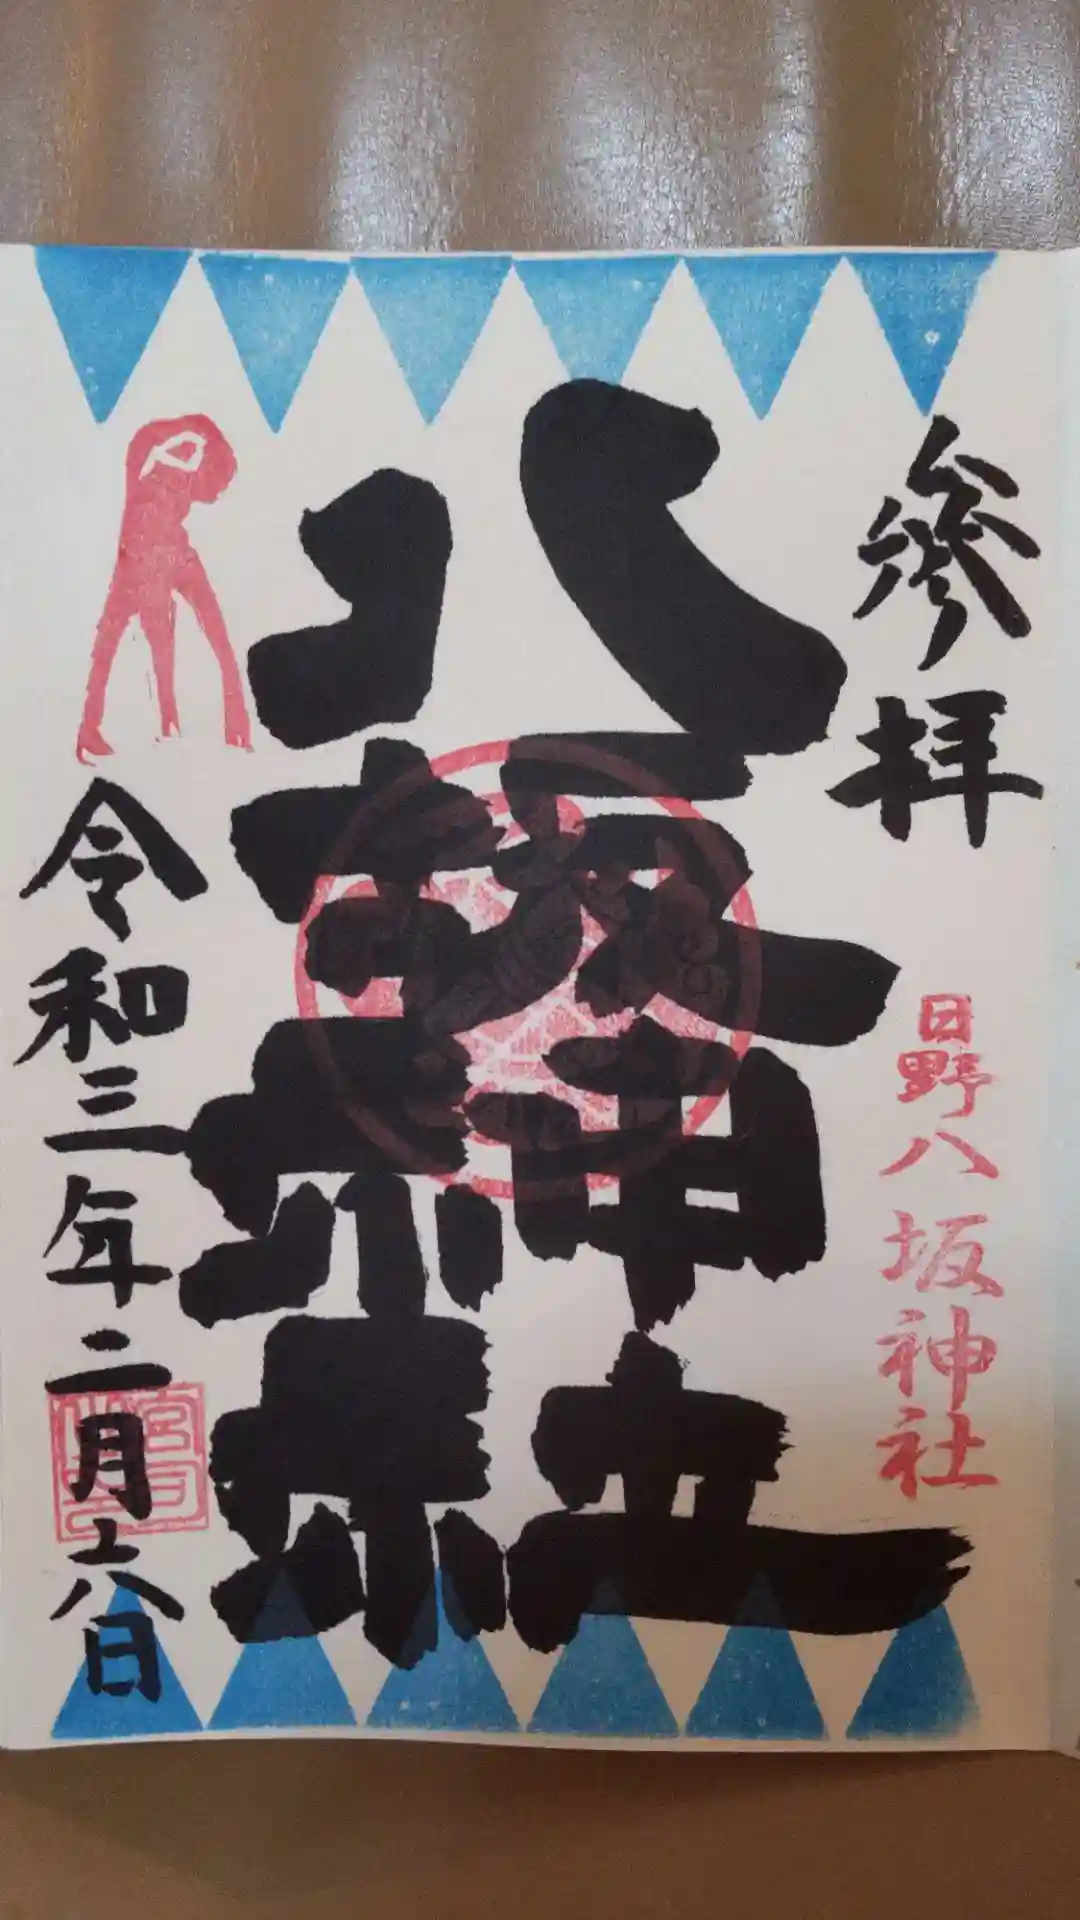 參拝
日野八坂神社
八坂神社
令和三年二月十六日
宮司